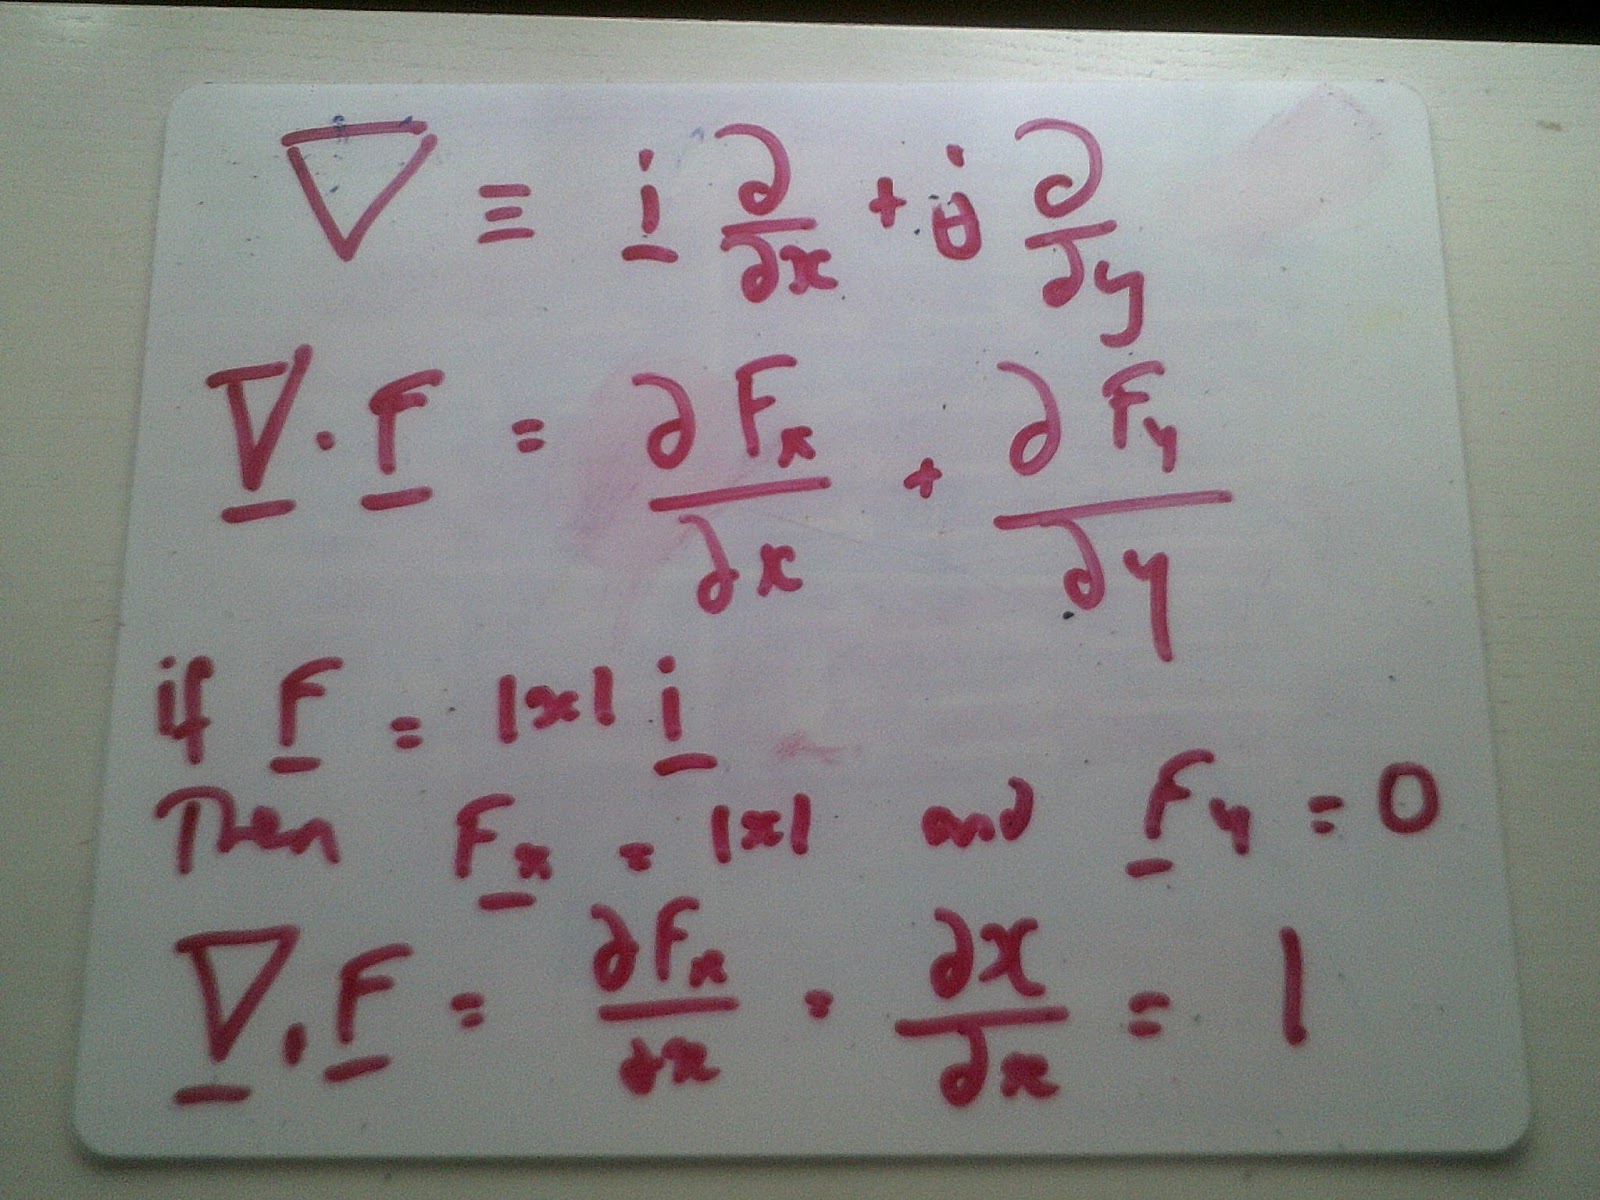 ∇ ≡ i ∂/∂x + j ∂/∂y
∇ · F = ∂Fx/∂x + ∂Fy/∂y
if F = |x| i
Then Fx = |x| and Fy = 0
∇ . F = ∂Fx/∂x = ∂x/∂x = 1